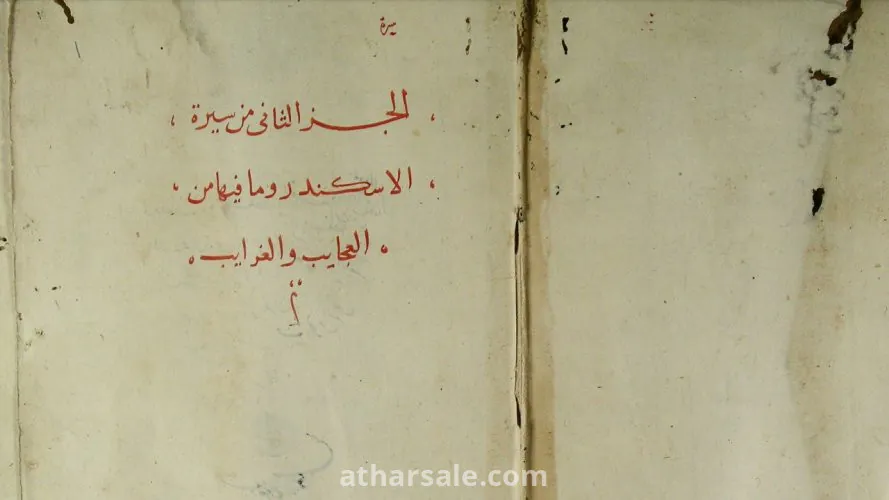 سيرة
الجز الثاني من سيرة
الاسكندر وما فيها من
العجايب والغرايب
atharsale.com